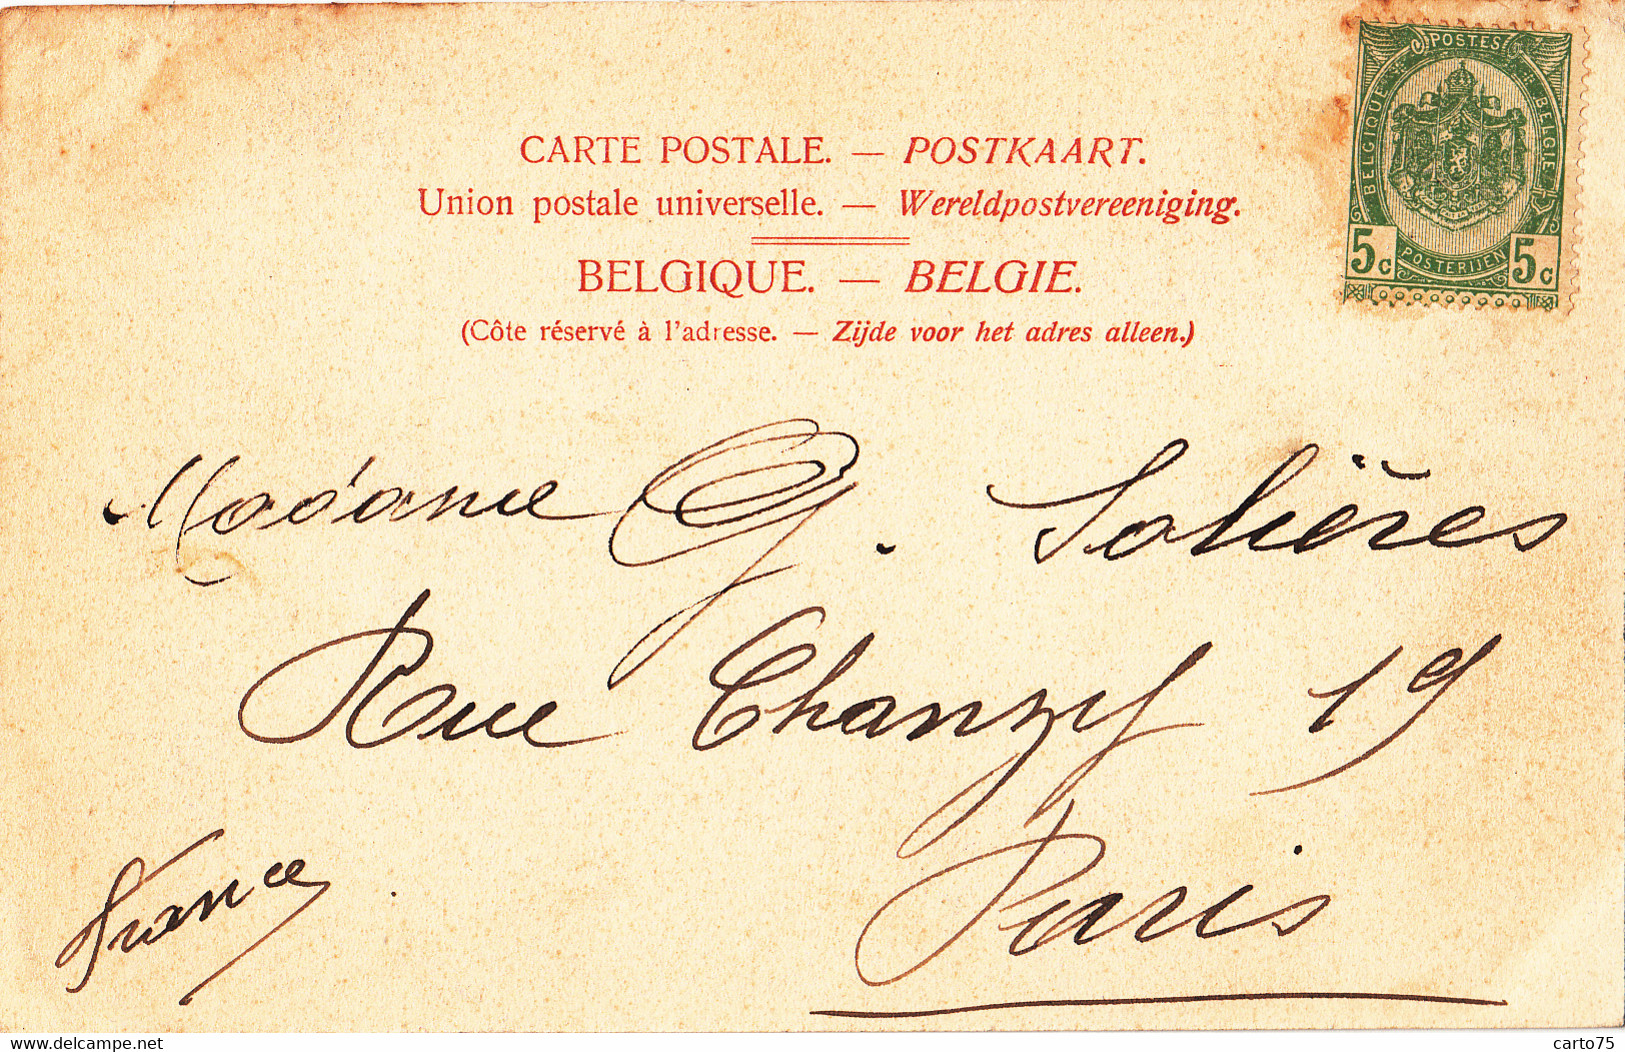 CARTE POSTALE. — POSTKAART.
Union postale universelle. — Wereldpostvereeniging.
BELGIQUE. — BELGIE.
(Côte réservé à l'adresse. — Zijde voor het adres alleen.)
POSTES
BELGIQUE
BELGIE
5c POSTERIJEN 5c
Madame G. Solières
Rue Chanzy 19
Paris
France
delcampe.net
carto75